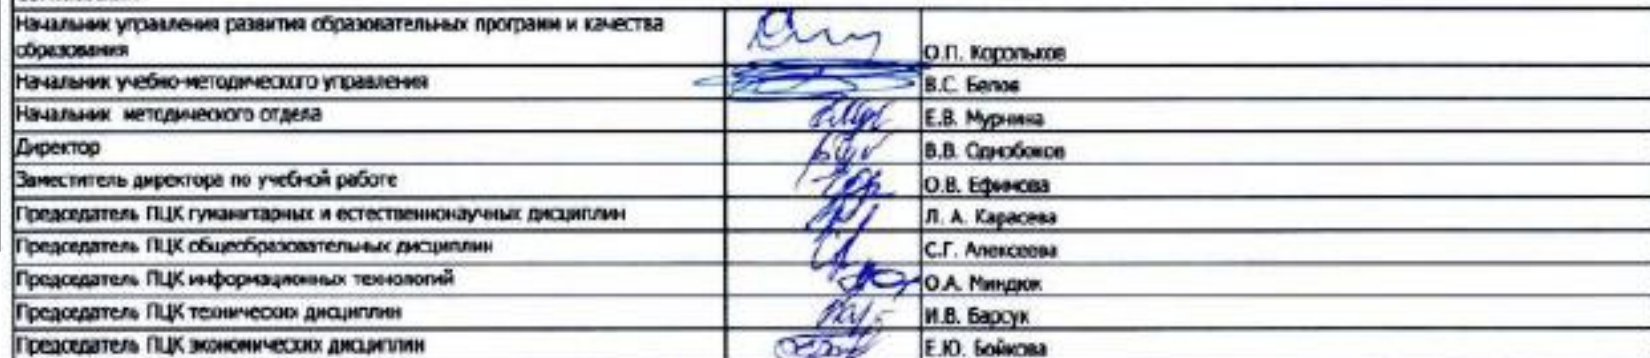 Начальник управления развития образовательных программ и качества
образования
О.П. Корольков
Начальник учебно-методического управления
В.С. Белов
Начальник методического отдела
Е.В. Мурнина
Директор
В.В. Однобоков
Заместитель директора по учебной работе
О.В. Ефимова
Председатель ПЦК гуманитарных и естественнонаучных дисциплин
Л. А. Карасева
Председатель ПЦК общеобразовательных дисциплин
С.Г. Алексеева
Председатель ПЦК информационных технологий
О.А. Миндюк
Председатель ПЦК технических дисциплин
И.В. Барсук
Председатель ПЦК экономических дисциплин
Е.Ю. Бойкова